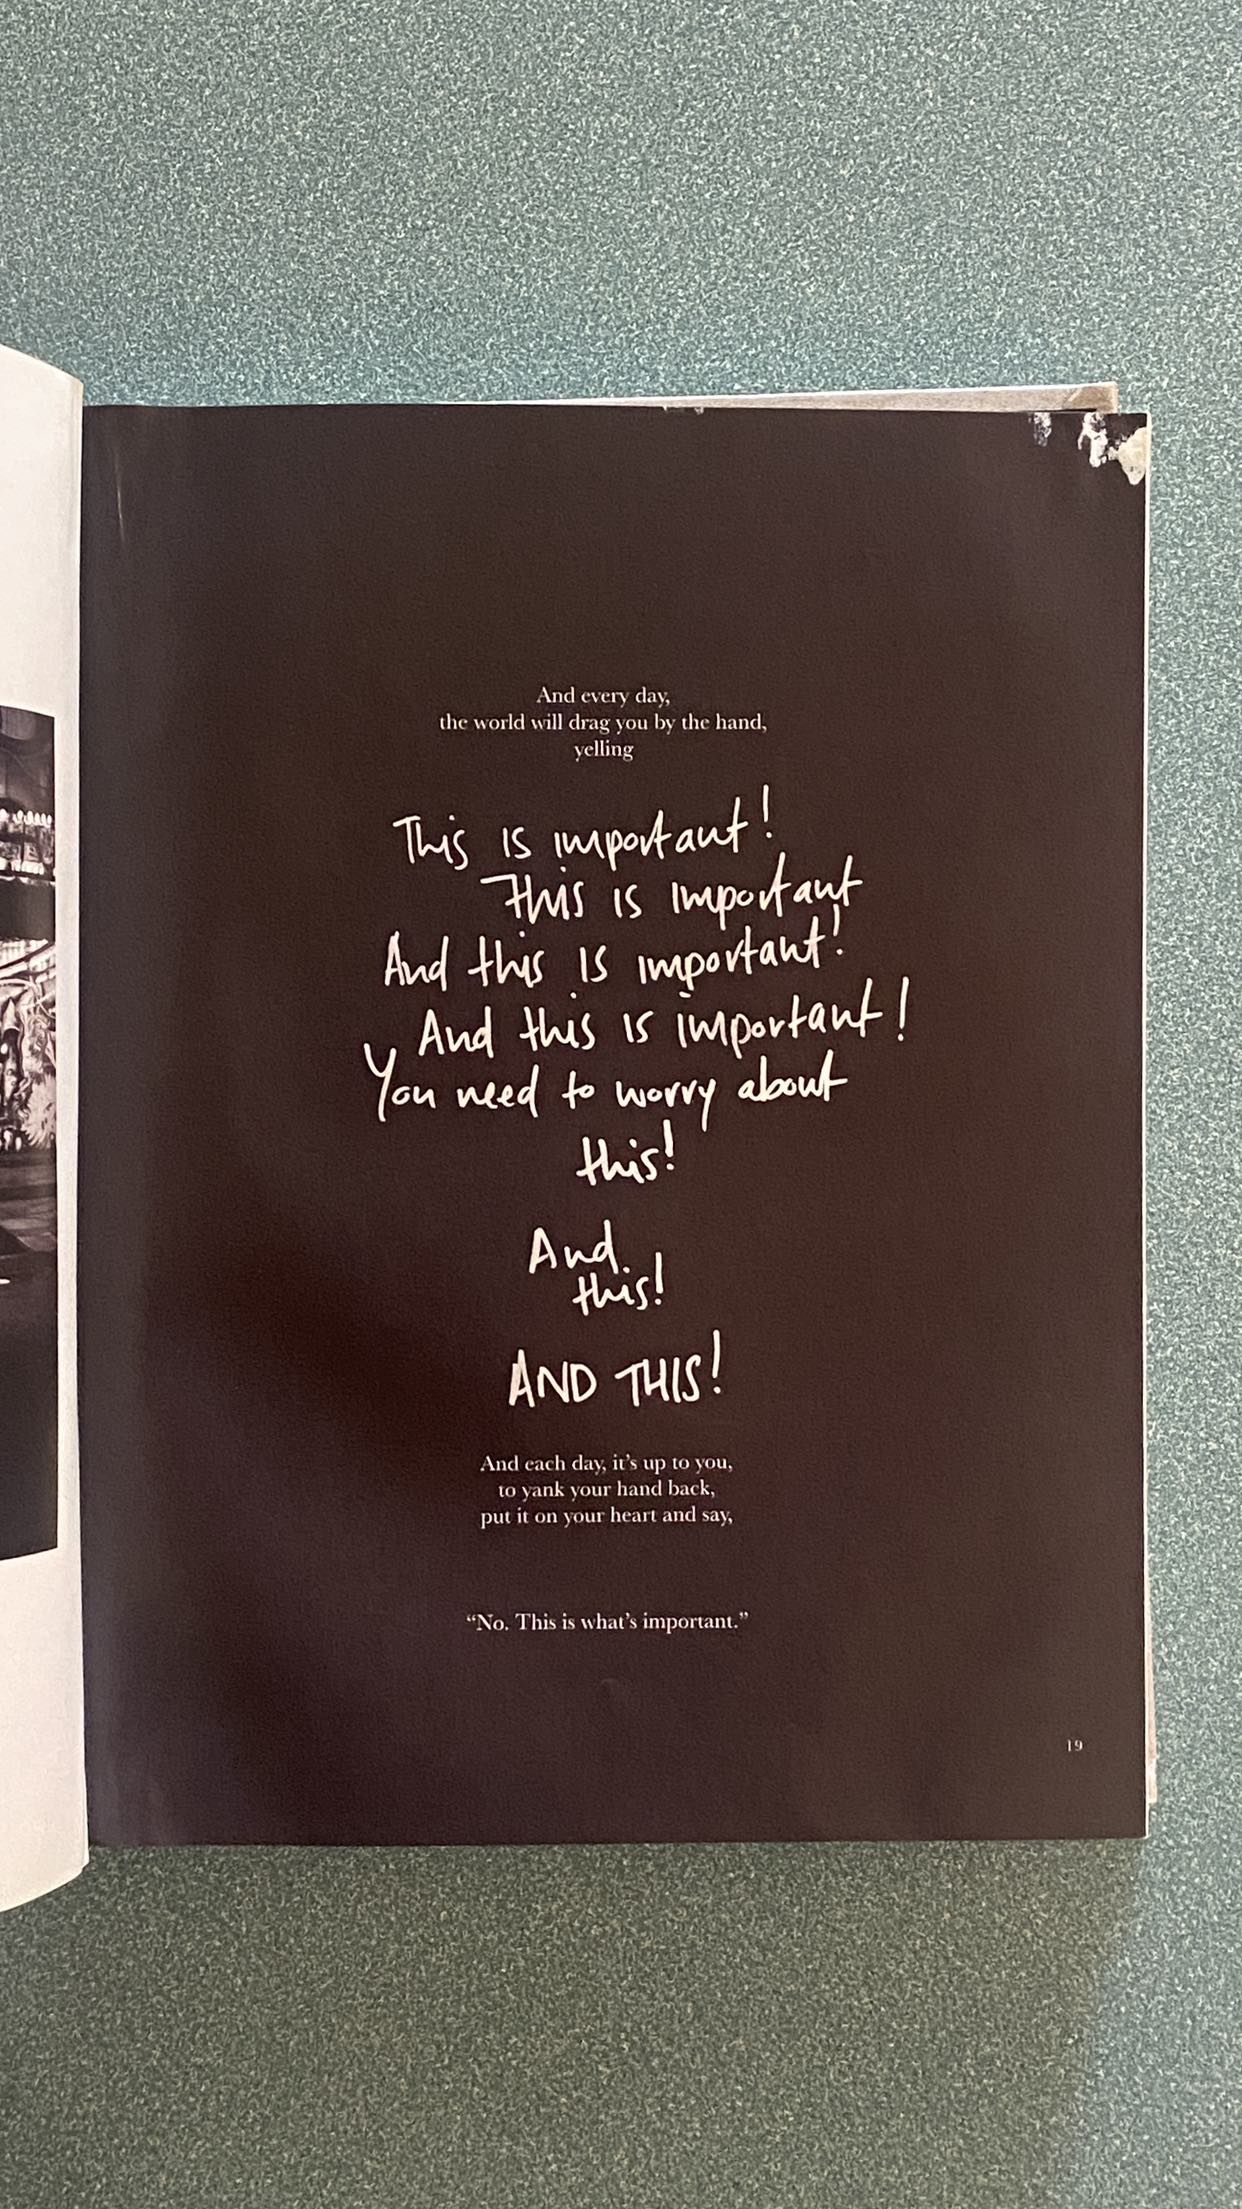 And every day,
the world will drag you by the hand,
yelling
This is important!
This is important
And this is important!
And this is important!
You need to worry about
this!
And
this!
AND THIS!
And each day, it’s up to you,
to yank your hand back,
put it on your heart and say,
“No. This is what’s important.”
19